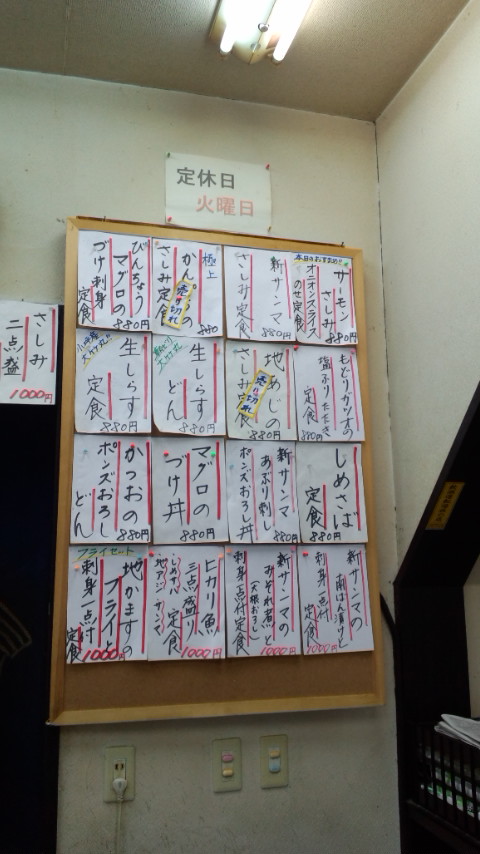 定休日
火曜日
本日のおすすめ!!
サーモン
オニオンスライス
のせ定食
880円
新サンマ
さしみ定食
880円
極上
売り切れ
さしみ定食
880
びんちょう
マグロの
づけ刺身
定食
880円
もどりカツオの
塩ぶりたたき
定食
880円
地あじの
さしみ定食
売り切れ
880円
生しらす
どん
880円
生しらす
定食
880円
しめさば
定食
880円
新サンマ
あぶり刺し
ポンズおろし丼
880円
マグロの
づけ丼
880円
かつおの
ポンズおろし
どん
880円
新サンマの
刺身一点付
定食
1000円
新サンマの
みぞれ煮と
(大根おろし)
刺身一点付定食
1000円
ヒカリ魚
三点盛り
定食
地アジ サンマ
1000円
フライセット
地かますの
フライと
刺身一点付
定食
1000円
さしみ
二点盛
1000円